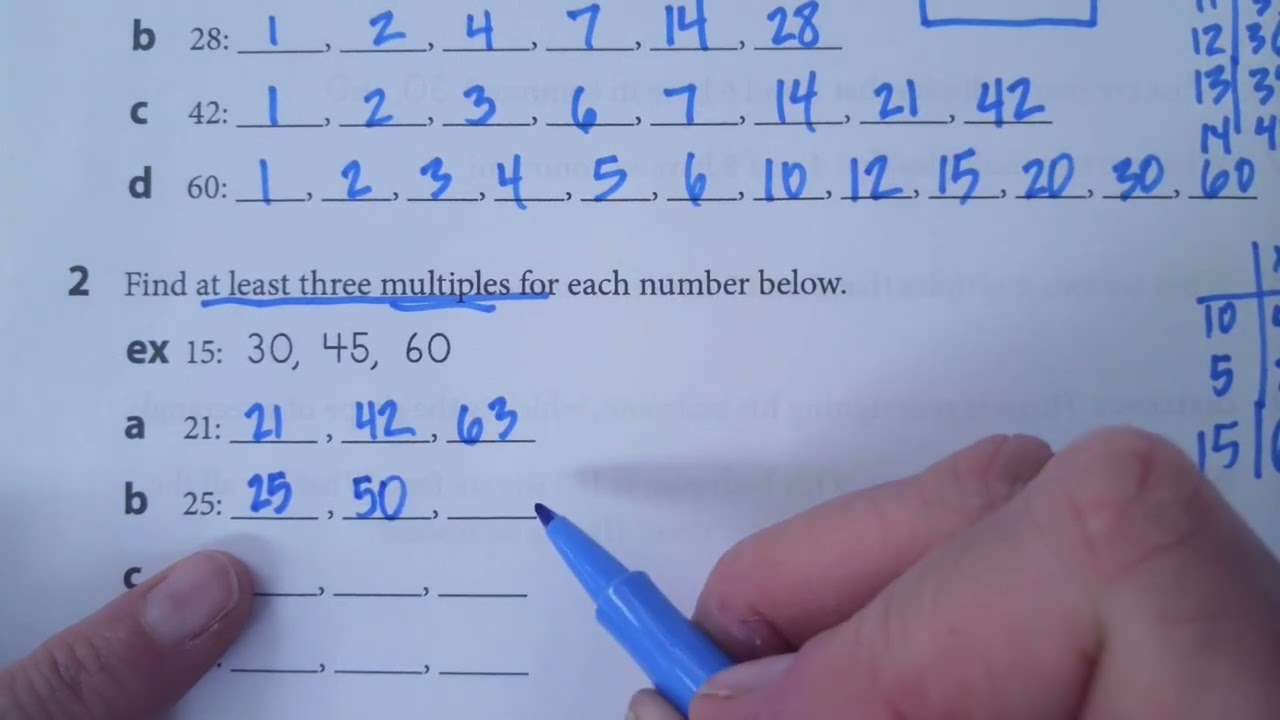 b 28: 1, 2, 4, 7, 14, 28
c 42: 1, 2, 3, 6, 7, 14, 21, 42
d 60: 1, 2, 3, 4, 5, 6, 10, 12, 15, 20, 30, 60
12
13
14
2 Find at least three multiples for each number below.
ex 15: 30, 45, 60
a 21: 21, 42, 63
b 25: 25, 50,
c
10
5
15